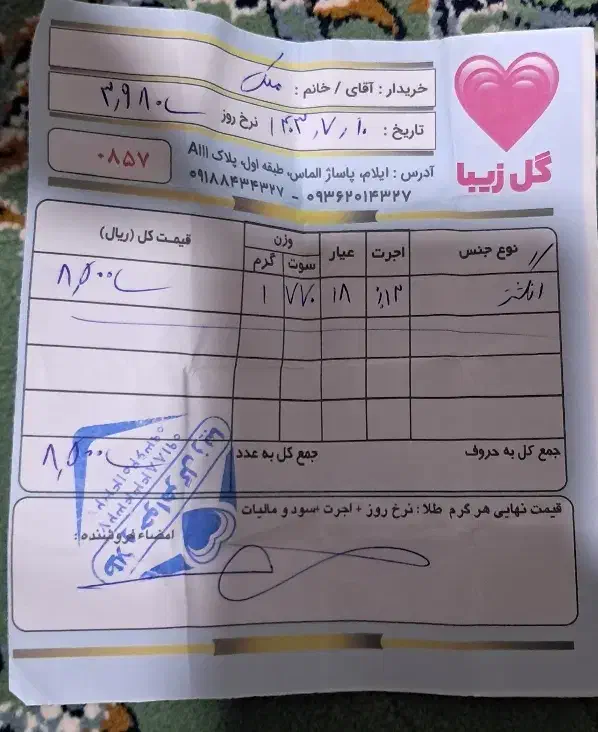 گل زیبا
خریدار : آقای / خانم : ملک
تاریخ : ۱۴۰۳٫۷٫۱۰ نرخ روز ۳٫۹۸۰
آدرس : ایلام، پاساژ الماس، طبقه اول، پلاک A111
۰۹۳۶۲۰۱۴۳۲۷ - ۰۹۱۸۸۴۳۴۳۲۷
۰۸۵۷
نوع جنس اجرت عیار وزن قیمت کل (ریال)
سوت گرم
انگشتر ٪۱۲ ۱۸ ۷۷۰ ۱ ۸٫۵۰۰
جمع کل به حروف جمع کل به عدد ۸٫۵۰۰
قیمت نهایی هر گرم طلا : نرخ روز + اجرت +سود و مالیات
امضاء فروشنده :